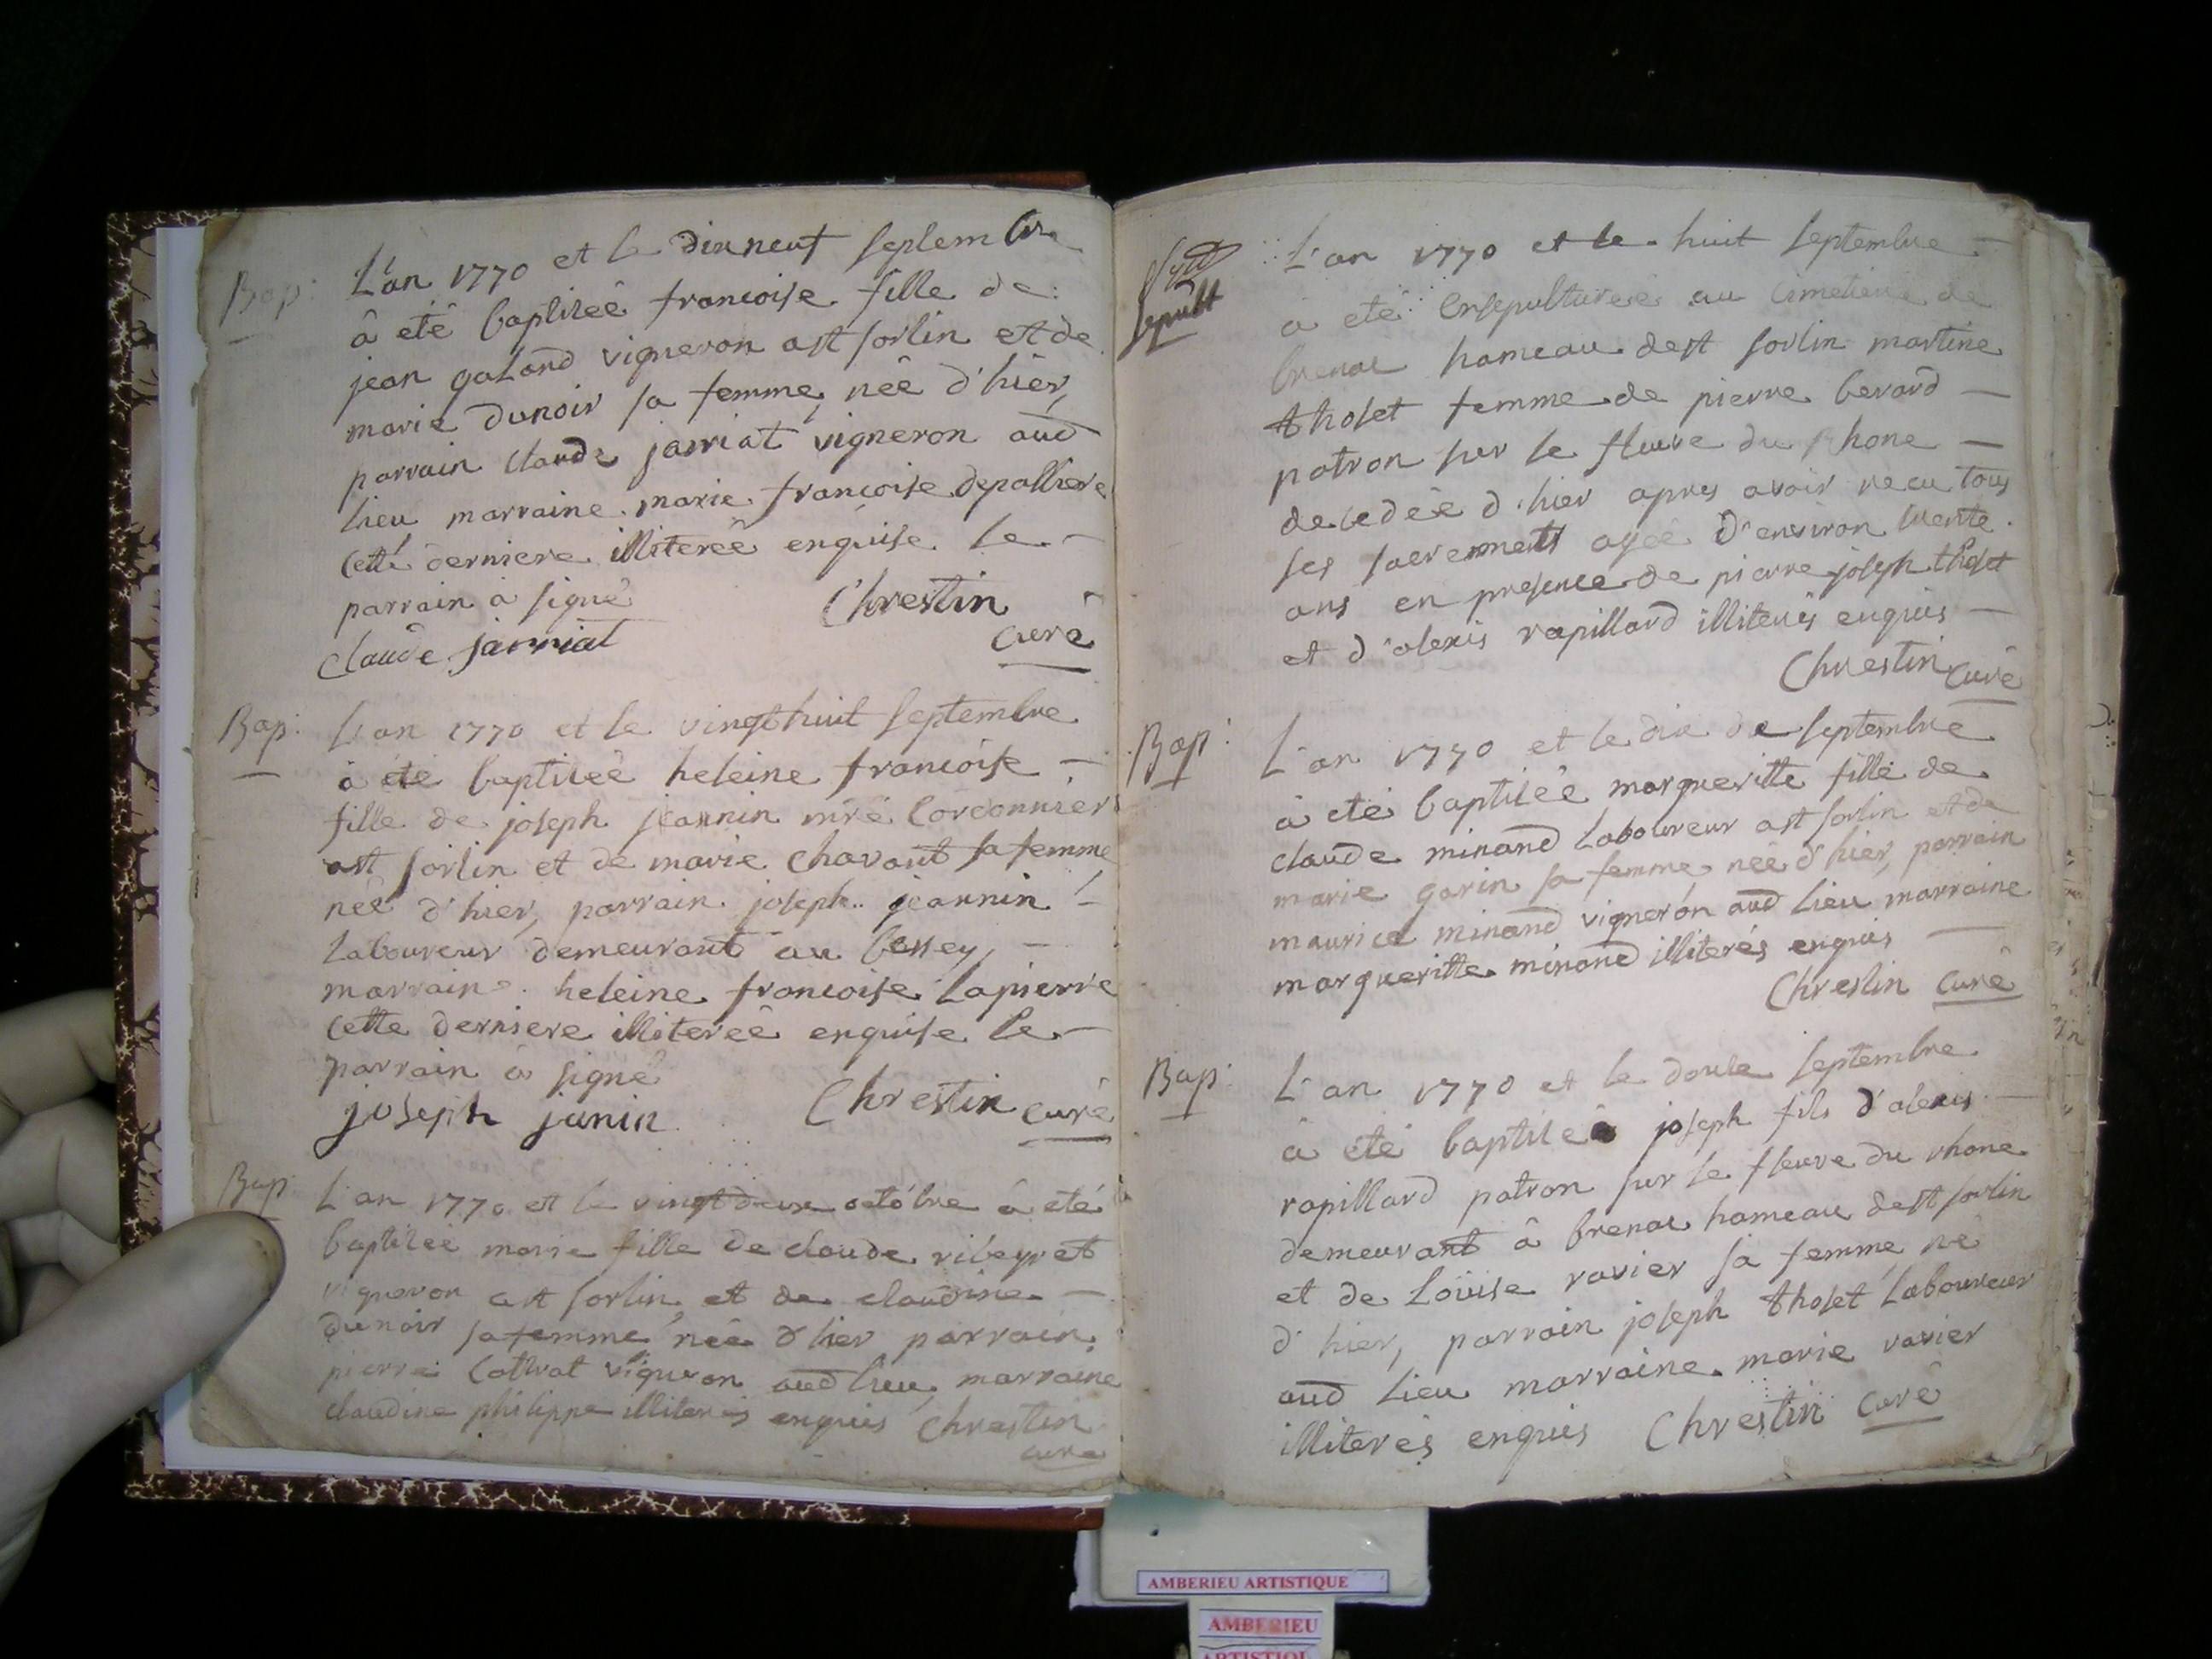 Bap:
L'an 1770 et le dixneuf septembre
à eté baptisée francoise fille de
jean galand vigneron a st sorlin et de
marie dunoir sa femme, née d'hier,
parrain claude jarriat vigneron aud
lieu marraine marie francoise depalliere
cette derniere illiterée enquise le
parrain a signé
Chrestin
curé
claude jarriat
Bap:
L'an 1770 et le vingthuit septembre
à eté baptisée heleine francoise
fille de joseph jeannin mre cordonnier
a st sorlin et de marie chavant sa femme
née d'hier, parrain joseph jeannin
Laboureur demeurant au bessey,
marraine heleine francoise Lapierre
cette derniere illiterée enquise le
parrain a signé
Chrestin curé
joseph janin
Bap:
L'an 1770 et le vingtdeux octobre à eté
baptisée marie fille de claude ribeyret
vigneron a st sorlin et de claudine
dunoir sa femme née d'hier parrain
pierre Cottrat vigneron aud lieu, marraine
claudine philippe illiterés enquis Chrestin
curé
sepult
L'an 1770 et le huit septembre
a eté ensepulturée au cimetiere de
brenar hameau de st sorlin martine
tholet femme de pierre berard
patron sur le fleuve du rhone
decedée d'hier apres avoir recu tous
ses sacrements agée d'environ trente
ans en presence de pierre joseph tholet
et d'alexis rapillard illiterés enquis
Chrestin curé
Bap:
L'an 1770 et le dix de septembre
à eté baptisée margueritte fille de
claude minand Laboureur a st sorlin et de
marie garin sa femme née d'hier, parrain
maurice minand vigneron aud lieu marraine
margueritte minand illiterés enquis
Chrestin curé
Bap:
L'an 1770 et le douze septembre
à eté baptisé joseph fils d'alexis
rapillard patron sur le fleuve du rhone
demeurant à brenar hameau de st sorlin
et de Loüise ravier sa femme né
d'hier, parrain joseph tholet Laboureur
aud lieu marraine marie ravier
illiterés enquis Chrestin curé
AMBERIEU ARTISTIQUE
AMBERIEU
ARTISTIQUE